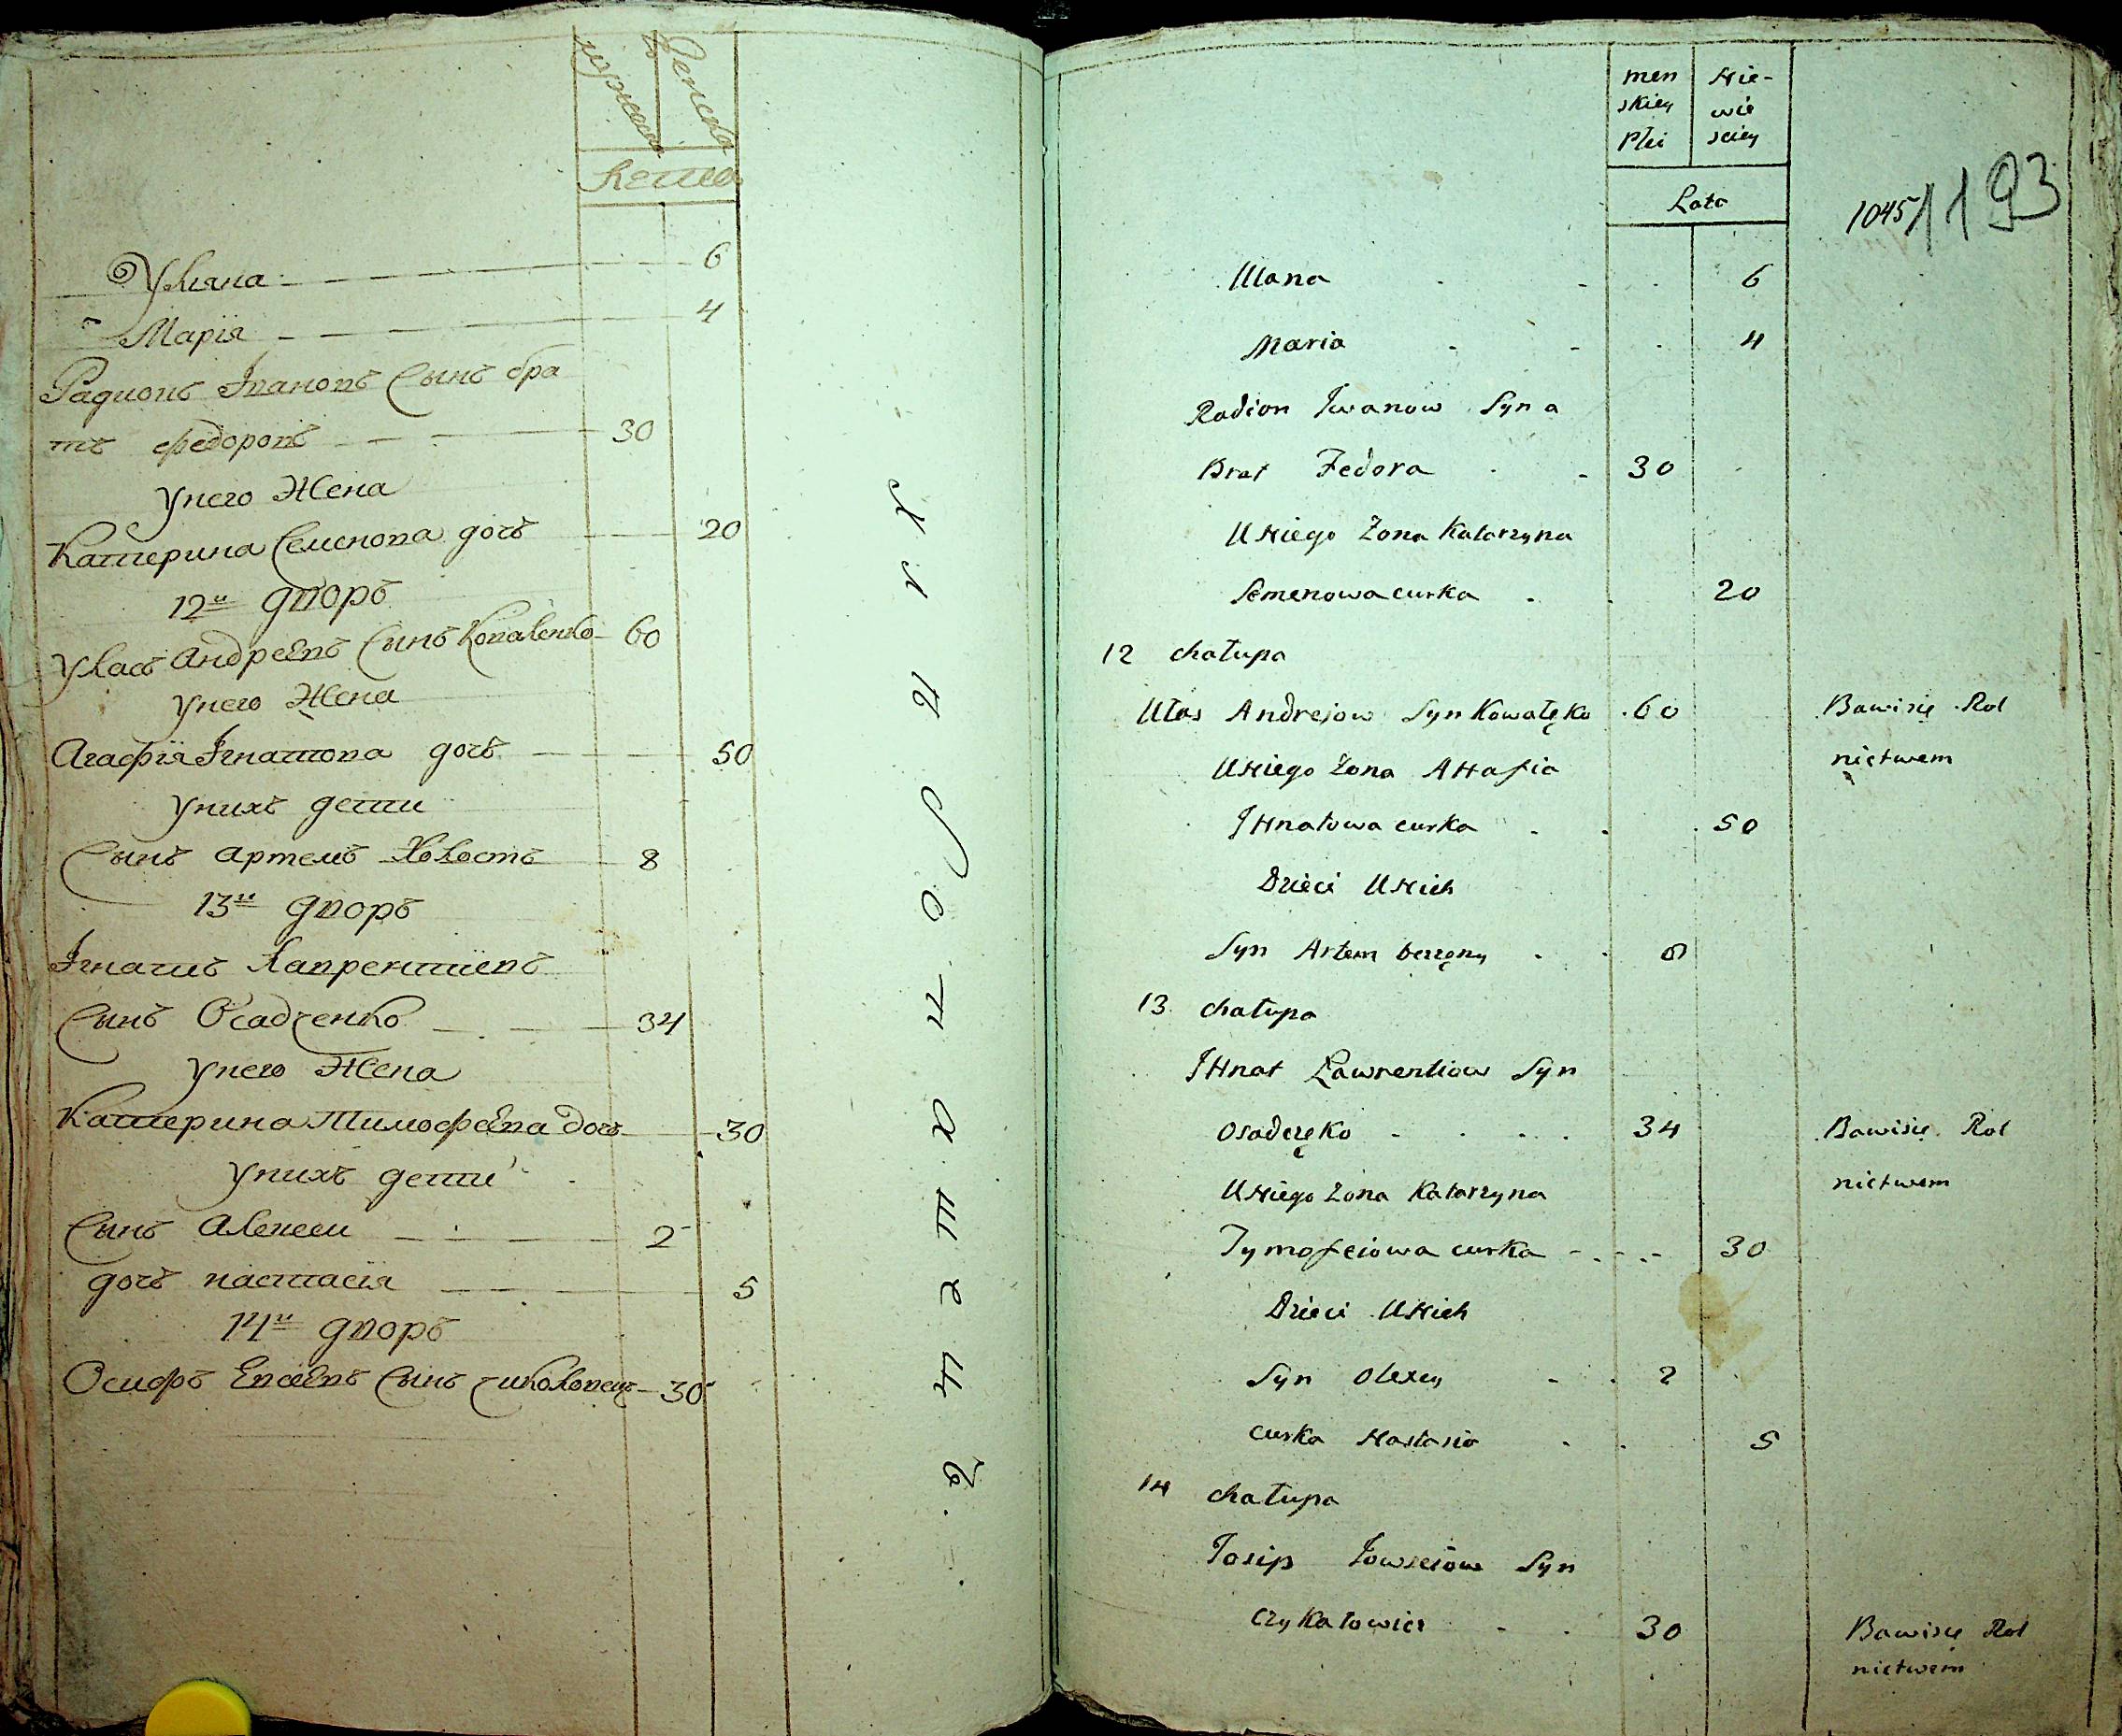 мужеска
женска
Лета
Уляна 6
Марія 4
Радионъ Iвановъ сынъ бра
тъ федоровъ 30
Унего Жена
Катерина Семенова дочь 20
12й дворъ
Уласъ андреевъ сынъ Коваленко 60
унего Жена
Агафія Iгнатова дочь 50
Унихъ дети
сынъ артемъ Холостъ 8
13й дворъ
Iгнатъ Лаврентиевъ
сынъ Осадченко 34
Унего Жена
Катерина Тимофеева дочь 30
Унихъ дети
сынъ алексеи 2
дочь настасія 5
14й дворъ
Осифъ Евсеевъ сынъ чикаловец 30
men Nie-
skiey wie
Płci sciey
Lata
1045/1193
Ulana 6
Maria 4
Radion Iwanow Syn a
Brat Fedora 30
U Niego Zona Katarzyna
Semenowa curka 20
12 chałupa
Ułas Andrejow Syn Kowalęko 60 Bawisię Rol
nictwem
U Niego Zona AHafia
IHnatowa curka 50
Dzieci U Nich
Syn Artem bezzęny 8
13 chałupa
IHnat Ławrentiow Syn
Osadczęko 34 Bawisię Rol
nictwem
U Niego Zona Katarzyna
Tymofeiowa curka 30
Dzieci U Nich
Syn Olexey 2
curka Nastasia 5
14 chałupa
Iosip Iowseiow Syn
CzyKałowiec 30 Bawisię Rol
nictwem